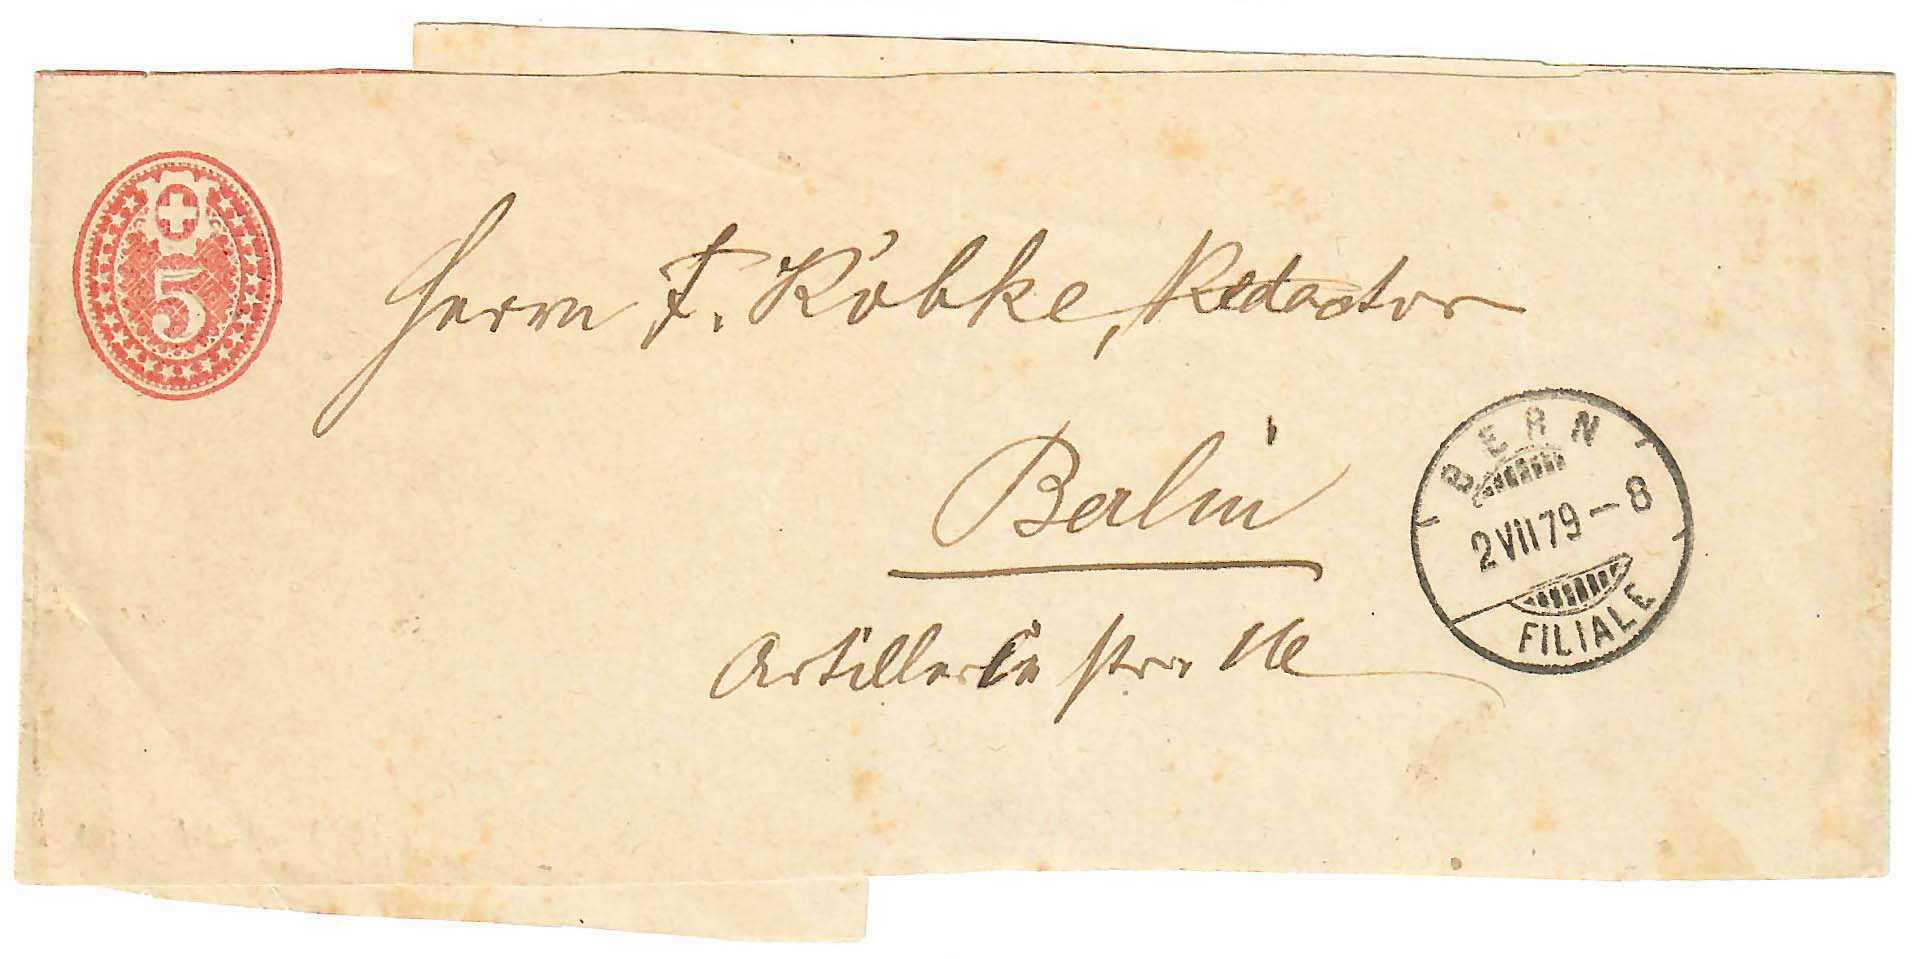 5
Herrn F. Köbke, Redactor
Berlin
Artillerie str.
BERN
2 VII 79 – 8
FILIALE